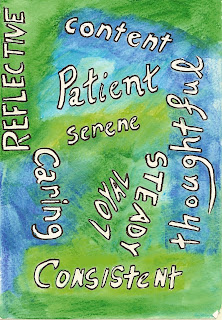 REFLECTIVE
content
Patient
serene
thoughtful
caring
STEADY
LOYAL
CONSISTENT